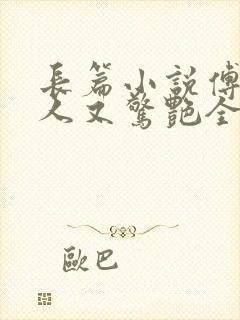 長篇小說傅
人又驚艷全
歐巴